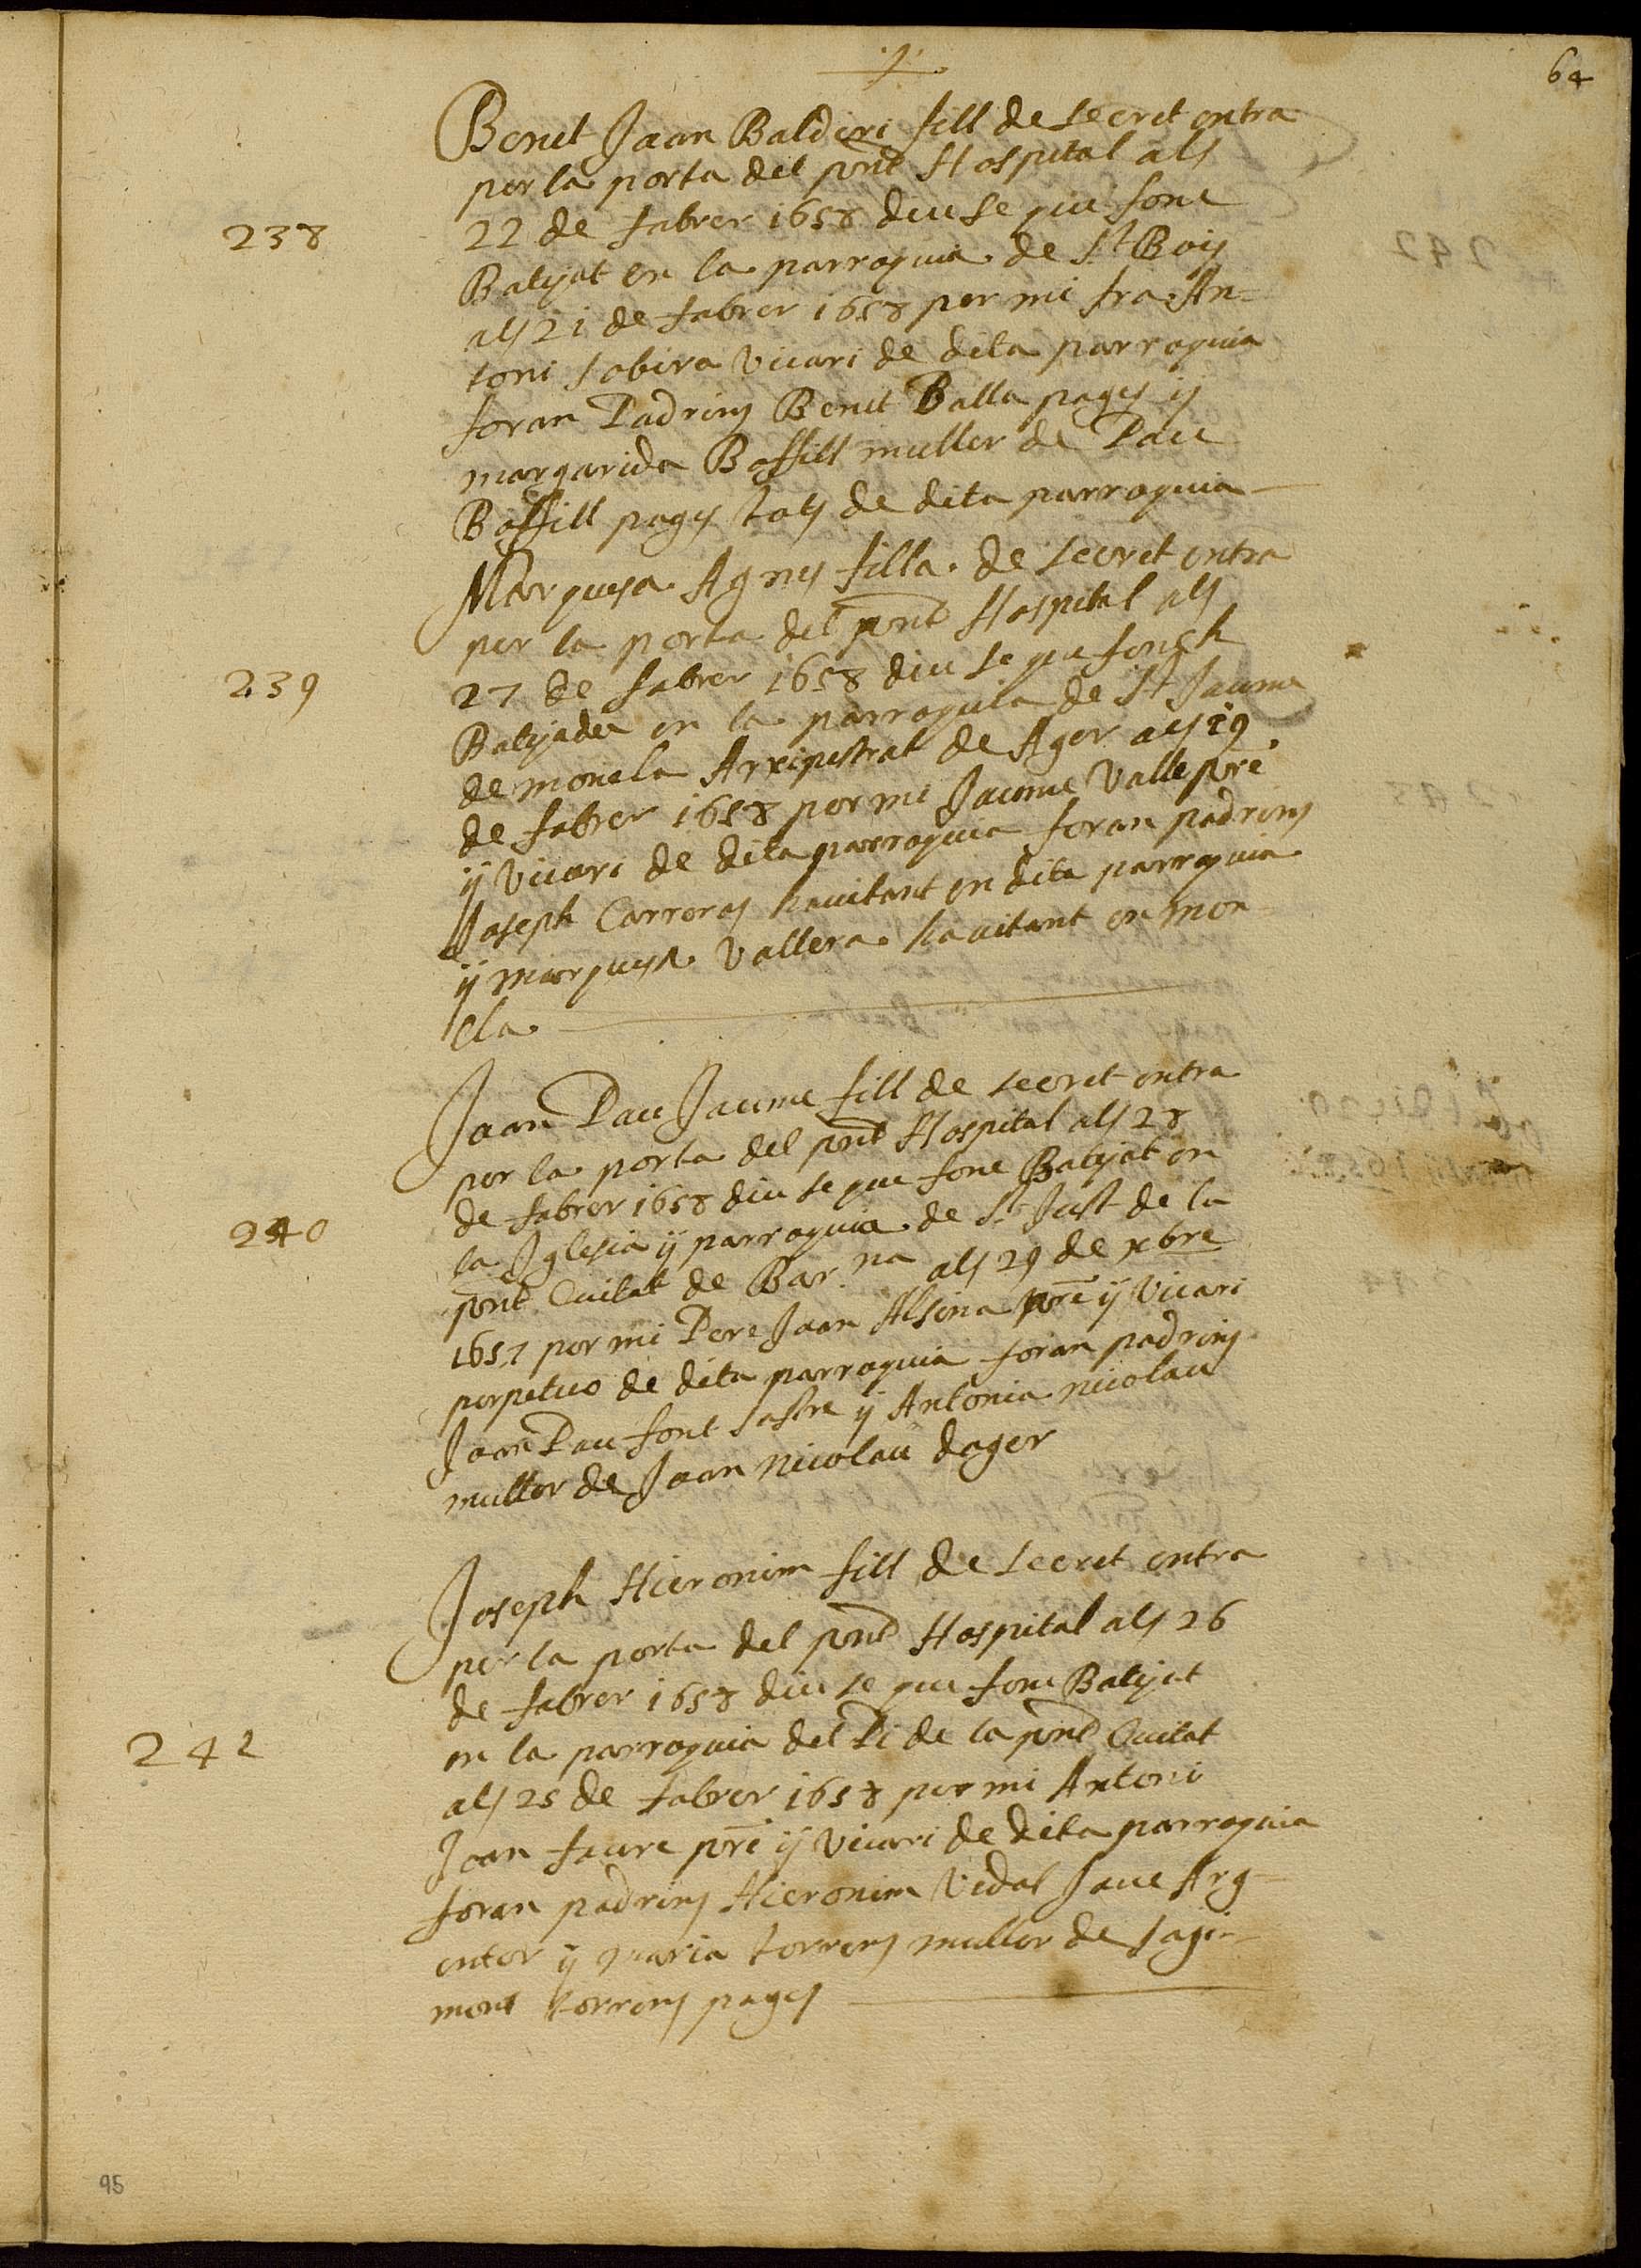 64
Benet Joan Balderi fill de secret entra
per la porta del pnt Hospital als
238
22 de fabrer 1658 diu se que fonc
Batejat en la parroquia de St Boy
als 21 de fabrer 1658 per mi fra An=
toni Sabira Vicari de dita parroquia
foran Padrins Benet Balla pages ÿ
margarida Boffill muller de Pau
Boffill pages tots de dita parroquia
Marquesa Agnes filla de secret entra
per la porta del pnt Hospital als
239
27 de fabrer 1658 diu se que fonch
Batejada en la parroquia de St Jaume
de moncla Arxiprestrat de Ager als 19
de fabrer 1658 per mi Jaume Valle pre
ÿ Vicari de dita parroquia foran padrins
Joseph Carreras havitant en dita parroquia
ÿ marquesa Vallera havitant en mon=
cla
Joan Pau Jaume fill de secret entra
per la porta del pnt Hospital als 28
de fabrer 1658 diu se que fonc Batejat en
240
la Iglesia ÿ parroquia de St Just de la
pnt Ciutat de Bar.na als 29 de xbre
1657 per mi Pere Joan Alsina pre ÿ Vicari
perpetuo de dita parroquia foran padrins
Joan Pau font sastre ÿ Antonia nicolau
muller de Joan Nicolau dager
Joseph Hieronim fill de secret entra
per la porta del pnt Hospital als 26
de fabrer 1658 diu se que fonc Batejat
242
en la parroquia del Pi de la pnt Ciutat
als 25 de fabrer 1658 per mi Antoni
Joan faure pre ÿ Vicari de dita parroquia
foran padrins Hieronim Vidal Jove Arg=
enter ÿ maria torrens muller de sagi=
mont torrens pages
95